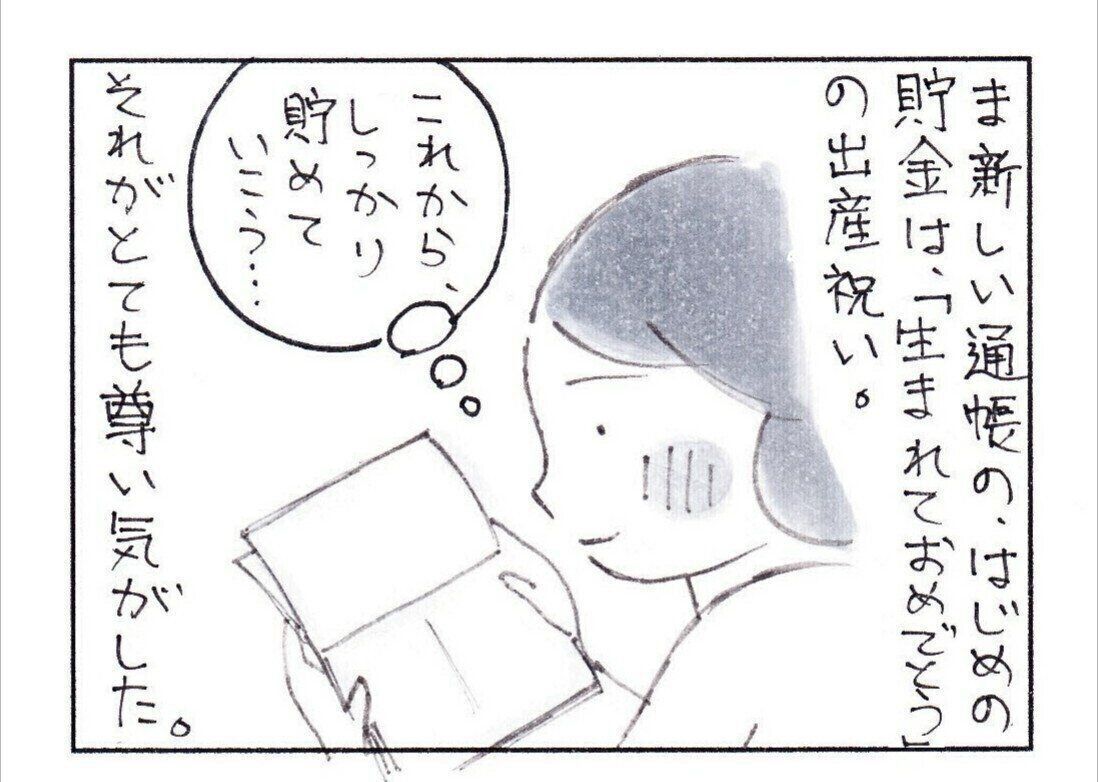 ま新しい通帳の、はじめの
貯金は、「生まれておめでとう」
の出産祝い。
これから、
しっかり
貯めて
いこう…
それがとても尊い気がした。